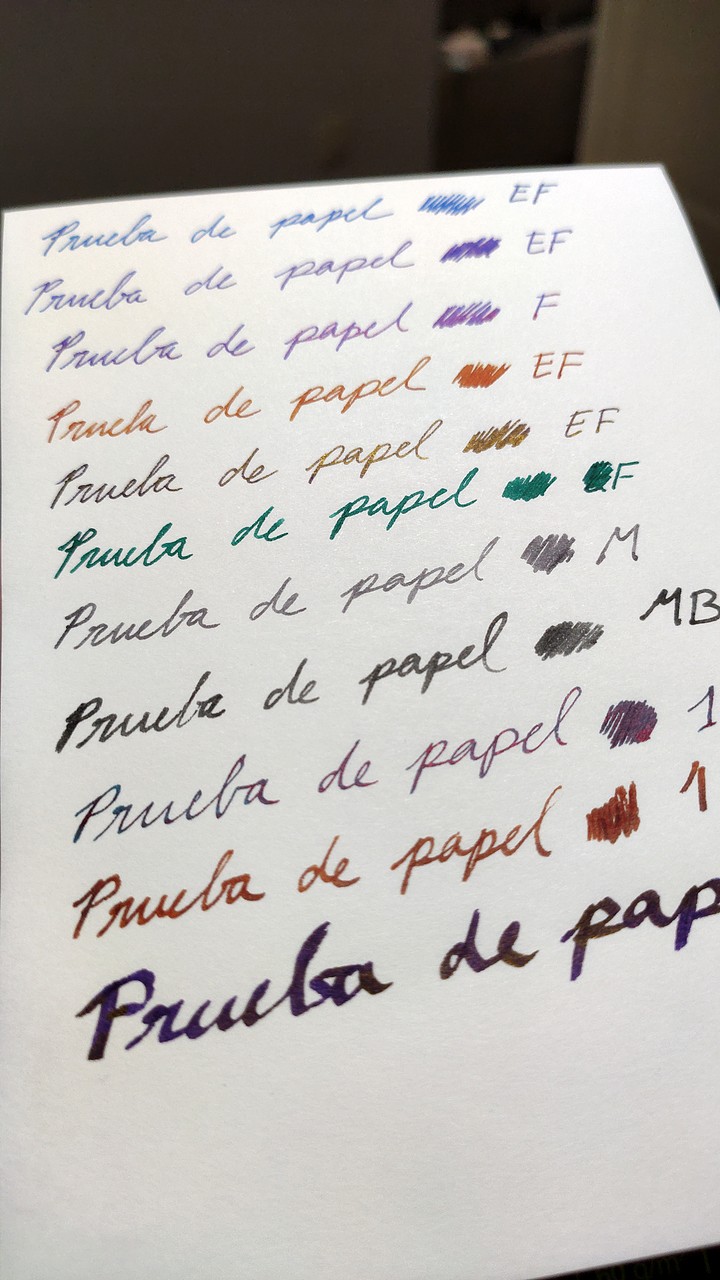 Prueba de papel EF
Prueba de papel EF
Prueba de papel F
Prueba de papel EF
Prueba de papel EF
Prueba de papel F
Prueba de papel M
Prueba de papel MB
Prueba de papel 1
Prueba de papel 1
Prueba de pap